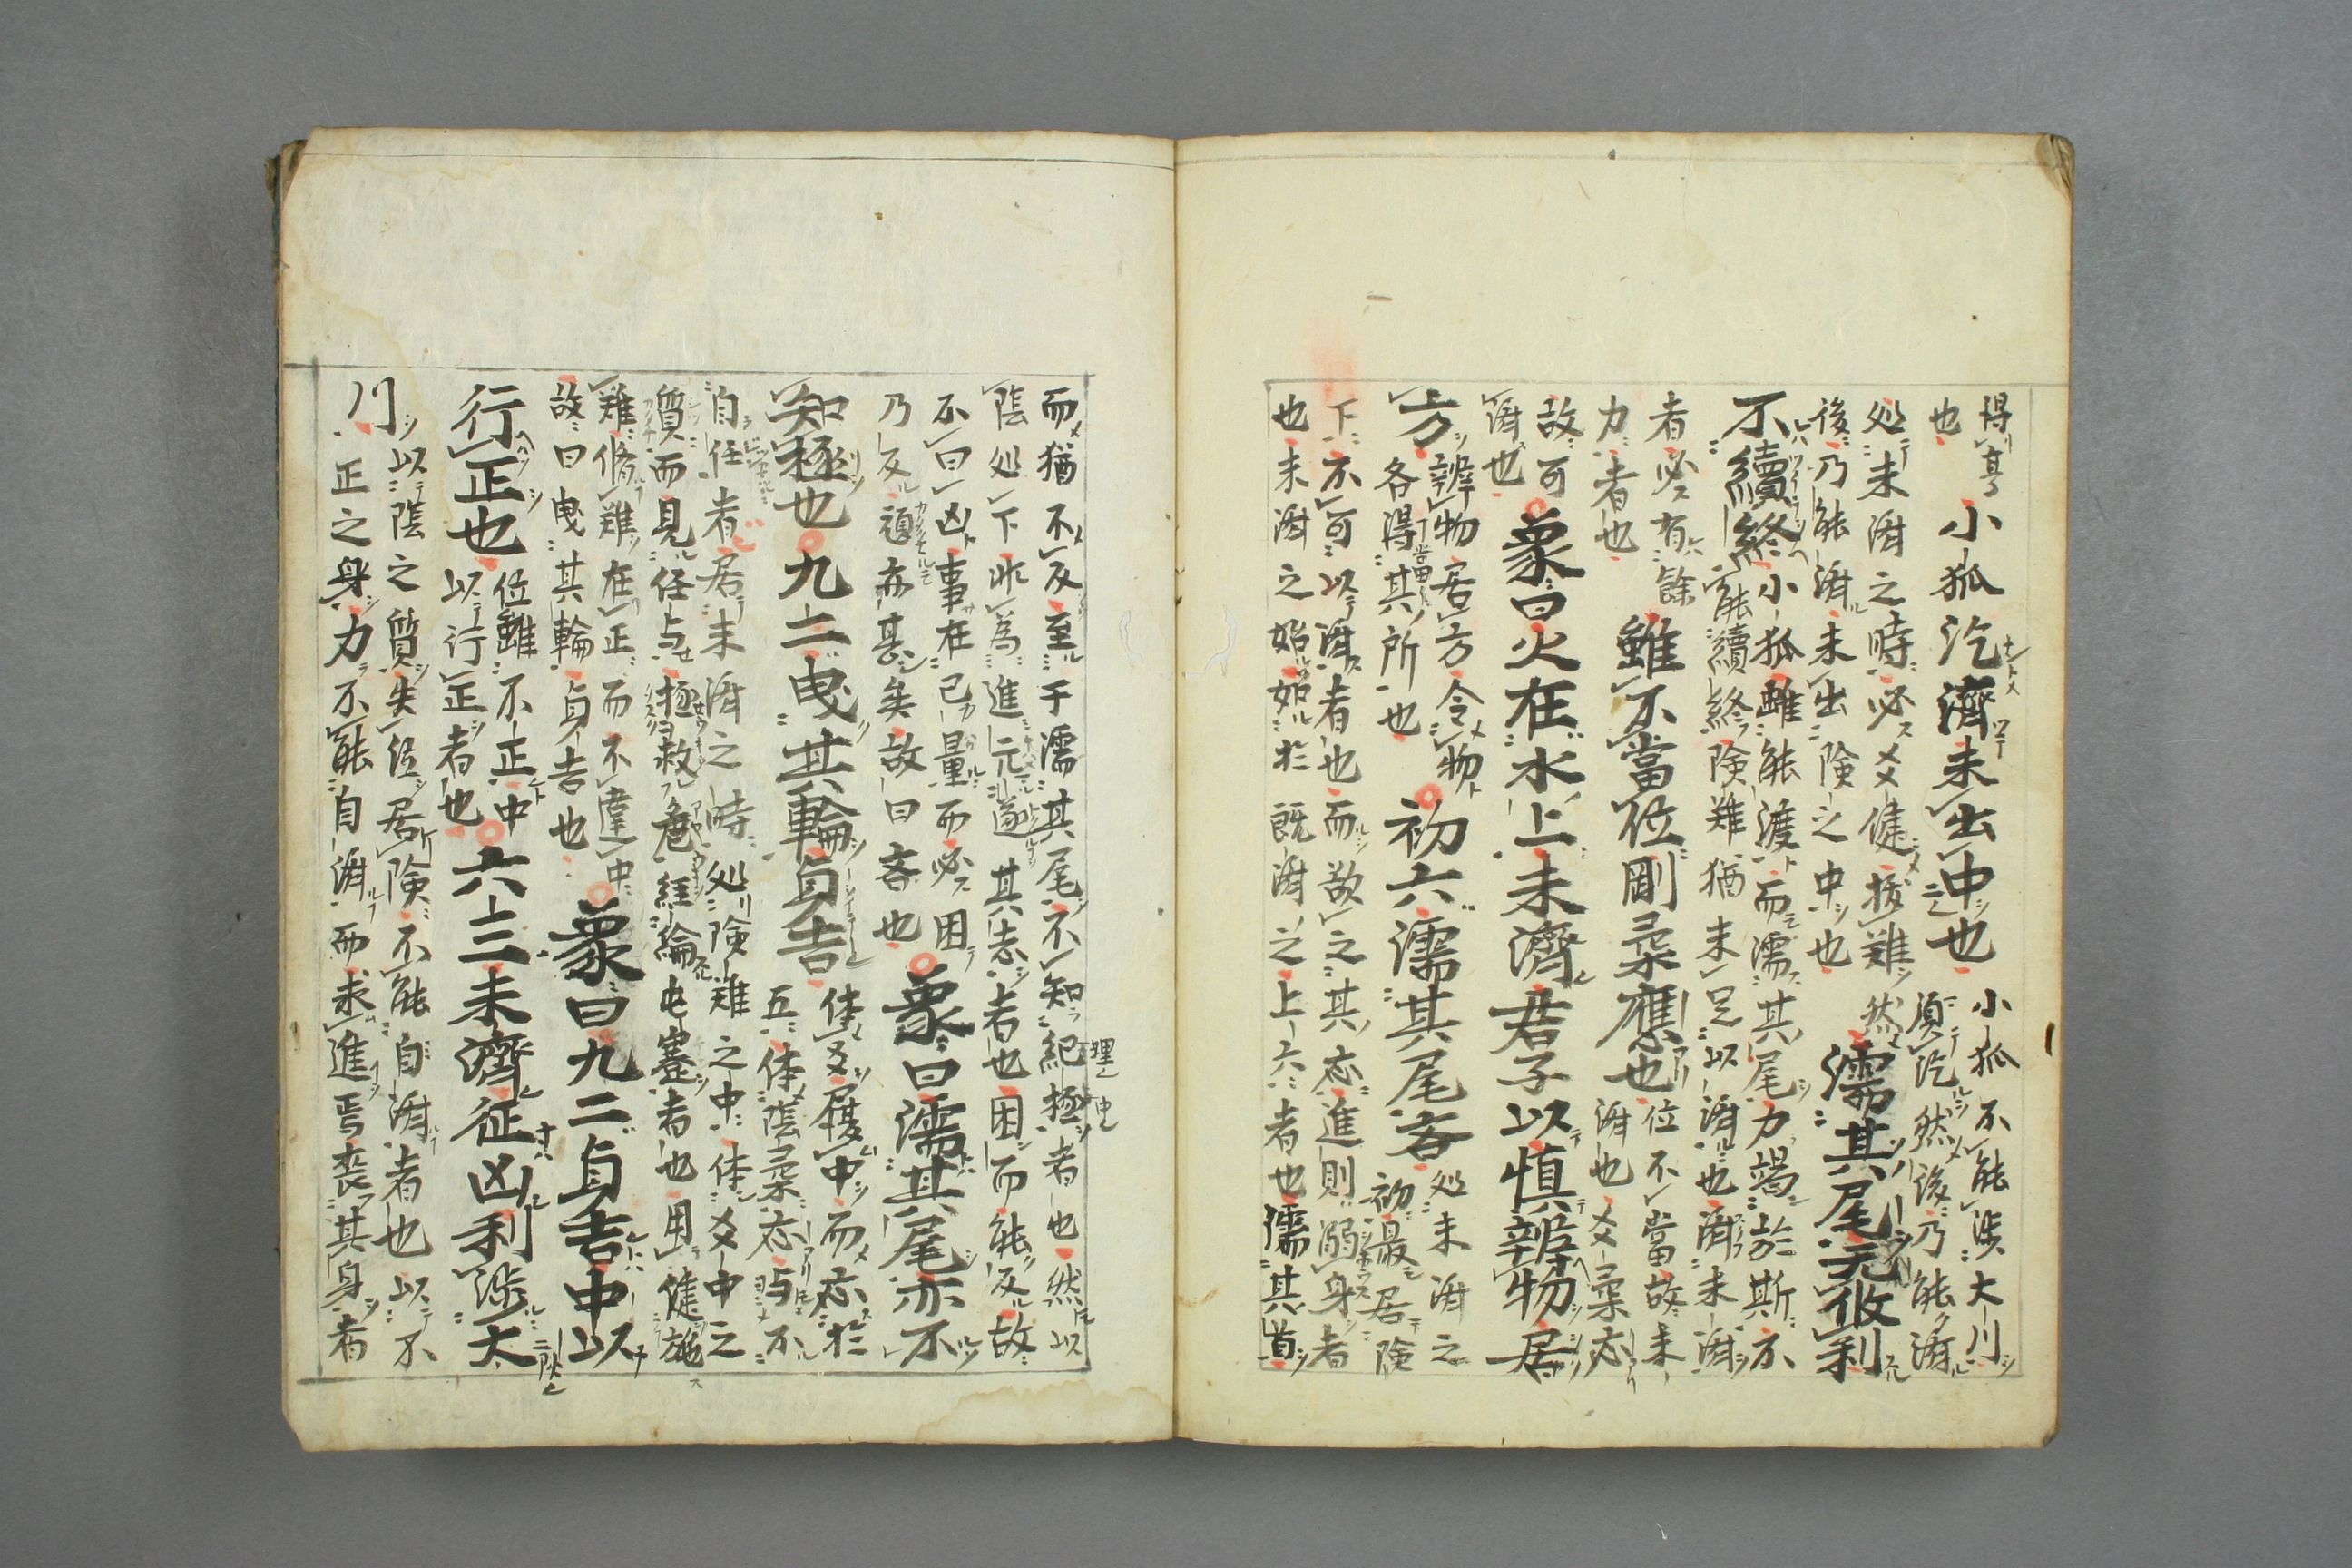 得亨
也
小狐汔濟未出中也
小狐不能渉大川
須汔然後乃能済
処未済之時必剛健抜難然
後乃能済未出険之中也
濡其尾无攸利
不續終
小狐雖能渡而濡其尾力竭於斯不
能續終険難猶未足以済也済未済
者必有餘
力者也
雖不當位剛柔應也
位不當故未
済也剛柔応
故可
済也
象曰火在水上未濟君子以慎辨物居
方
辨物居方令物
各得其所也
初六濡其尾吝
処未済之
初最居険
下不可以済者也而欲之其応進則溺身者
也未済之始始於既済之上六者也濡其首
而猶不反至于濡其尾不知紀極者也然以
陰処下非為進亢遂其志者也困而能反故
不曰凶事在己量而必困
乃反頑亦甚矣故曰吝也
象曰濡其尾亦不
知極也 九二曳其輪貞吉
体剛履中而応於
五体陰柔応与不
自任者居未済之時処険難之中体剛中之
質而見任与拯救危經綸屯蹇者也用健施
難脩難在正而不違中
故曰曳其輪貞吉也
象曰九二貞吉中以
行正也
位雖不正中
以行正者也
六三未濟征凶利渉大
川
以陰之質失位居険不能自済者也以不
正之身力不能自済而求進焉喪其身者